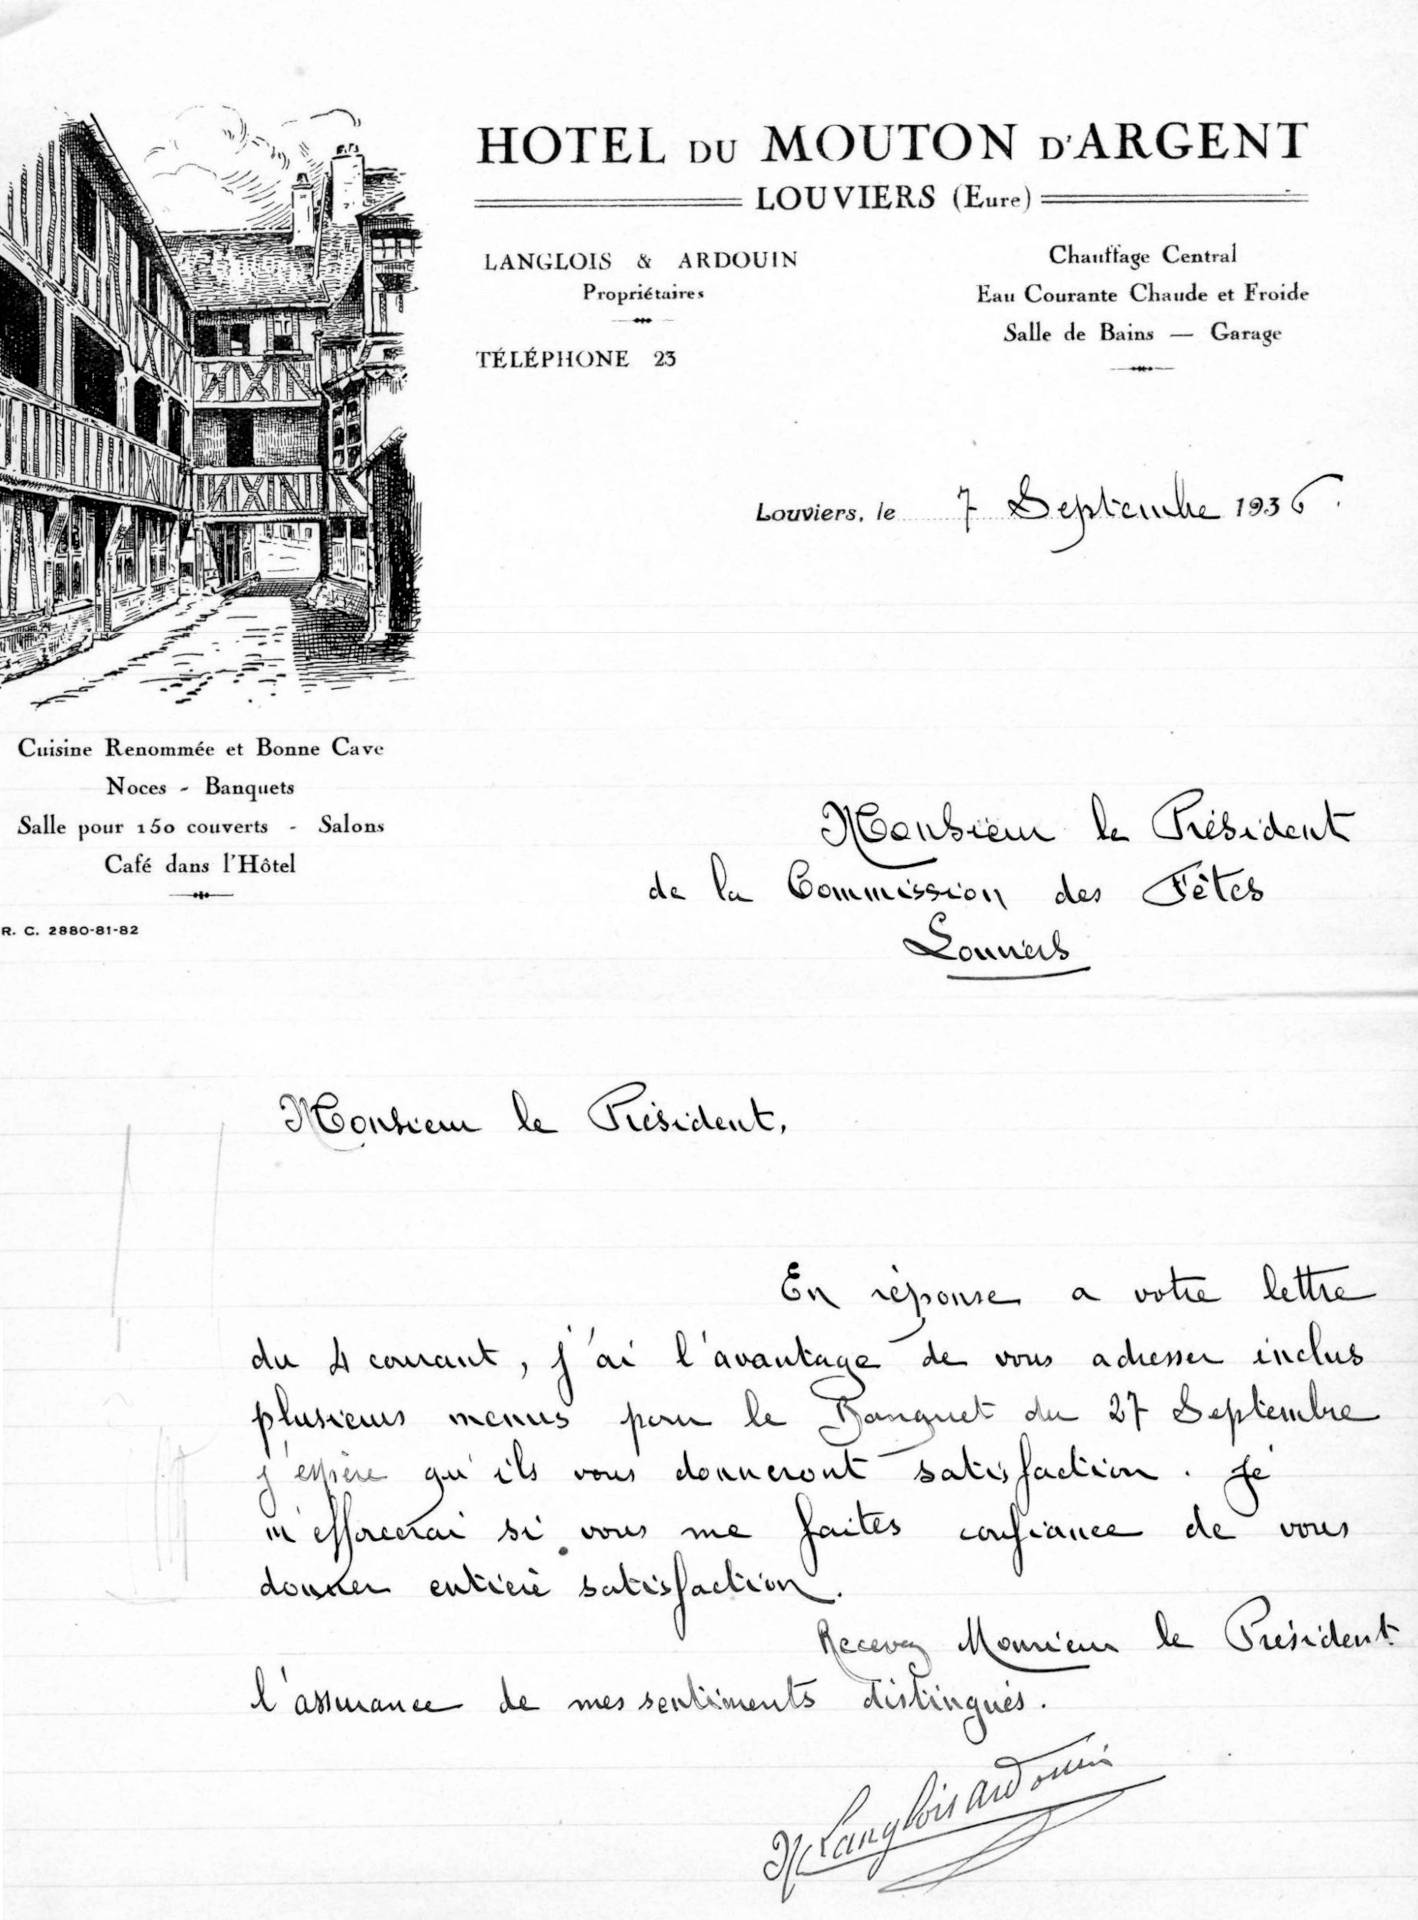 HOTEL DU MOUTON D'ARGENT
LOUVIERS (Eure)
LANGLOIS & ARDOUIN
Propriétaires
TÉLÉPHONE 23
Chauffage Central
Eau Courante Chaude et Froide
Salle de Bains — Garage
Louviers, le 7 Septembre 1936.
Cuisine Renommée et Bonne Cave
Noces - Banquets
Salle pour 150 couverts - Salons
Café dans l'Hôtel
R. C. 2880-81-82
Monsieur le Président
de la Commission des Fêtes
Louviers
Monsieur le Président,
En réponse a votre lettre
du 4 courant, j'ai l'avantage de vous adresser inclus
plusieurs menus pour le Banquet du 27 Septembre
j'espère qu'ils vous donneront satisfaction. Je
m'efforcerai si vous me faites confiance de vous
donner entière satisfaction.
Recevez Monsieur le Président
l'assurance de mes sentiments distingués.
Langlois Ardouin